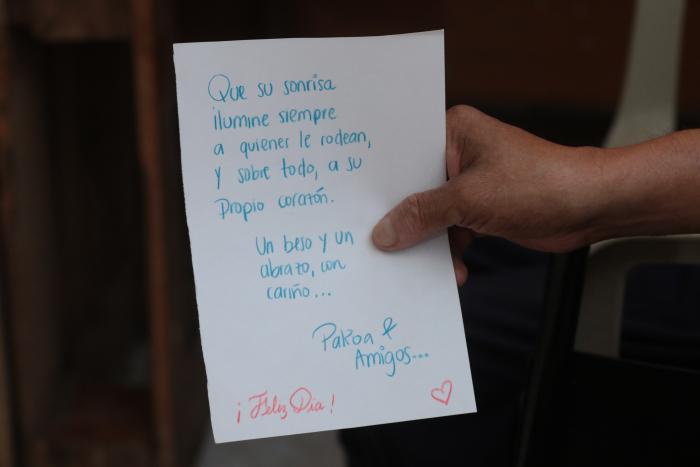 Que su sonrisa
ilumine siempre
a quiener le rodean,
y sobre todo, a su
Propio corazón.
Un beso y un
abrazo, con
cariño...
Pakoa &
Amigos...
¡Feliz Dia!